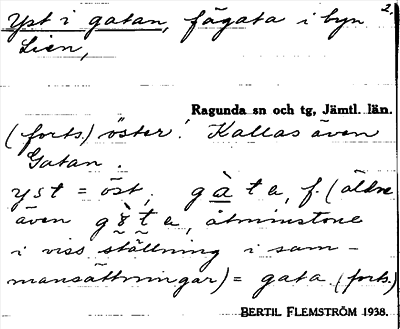 2.
Yst i gatan, fägata i byn
Lien,
Ragunda sn och tg, Jämtl. län.
(forts.) öster. Kallas även
Gatan.
yst = öst; gàta, f. (äldre
även gàta, åtminstone
i viss ställning i sam-
mansättningar) = gata. (forts.)
BERTIL FLEMSTRÖM 1938.